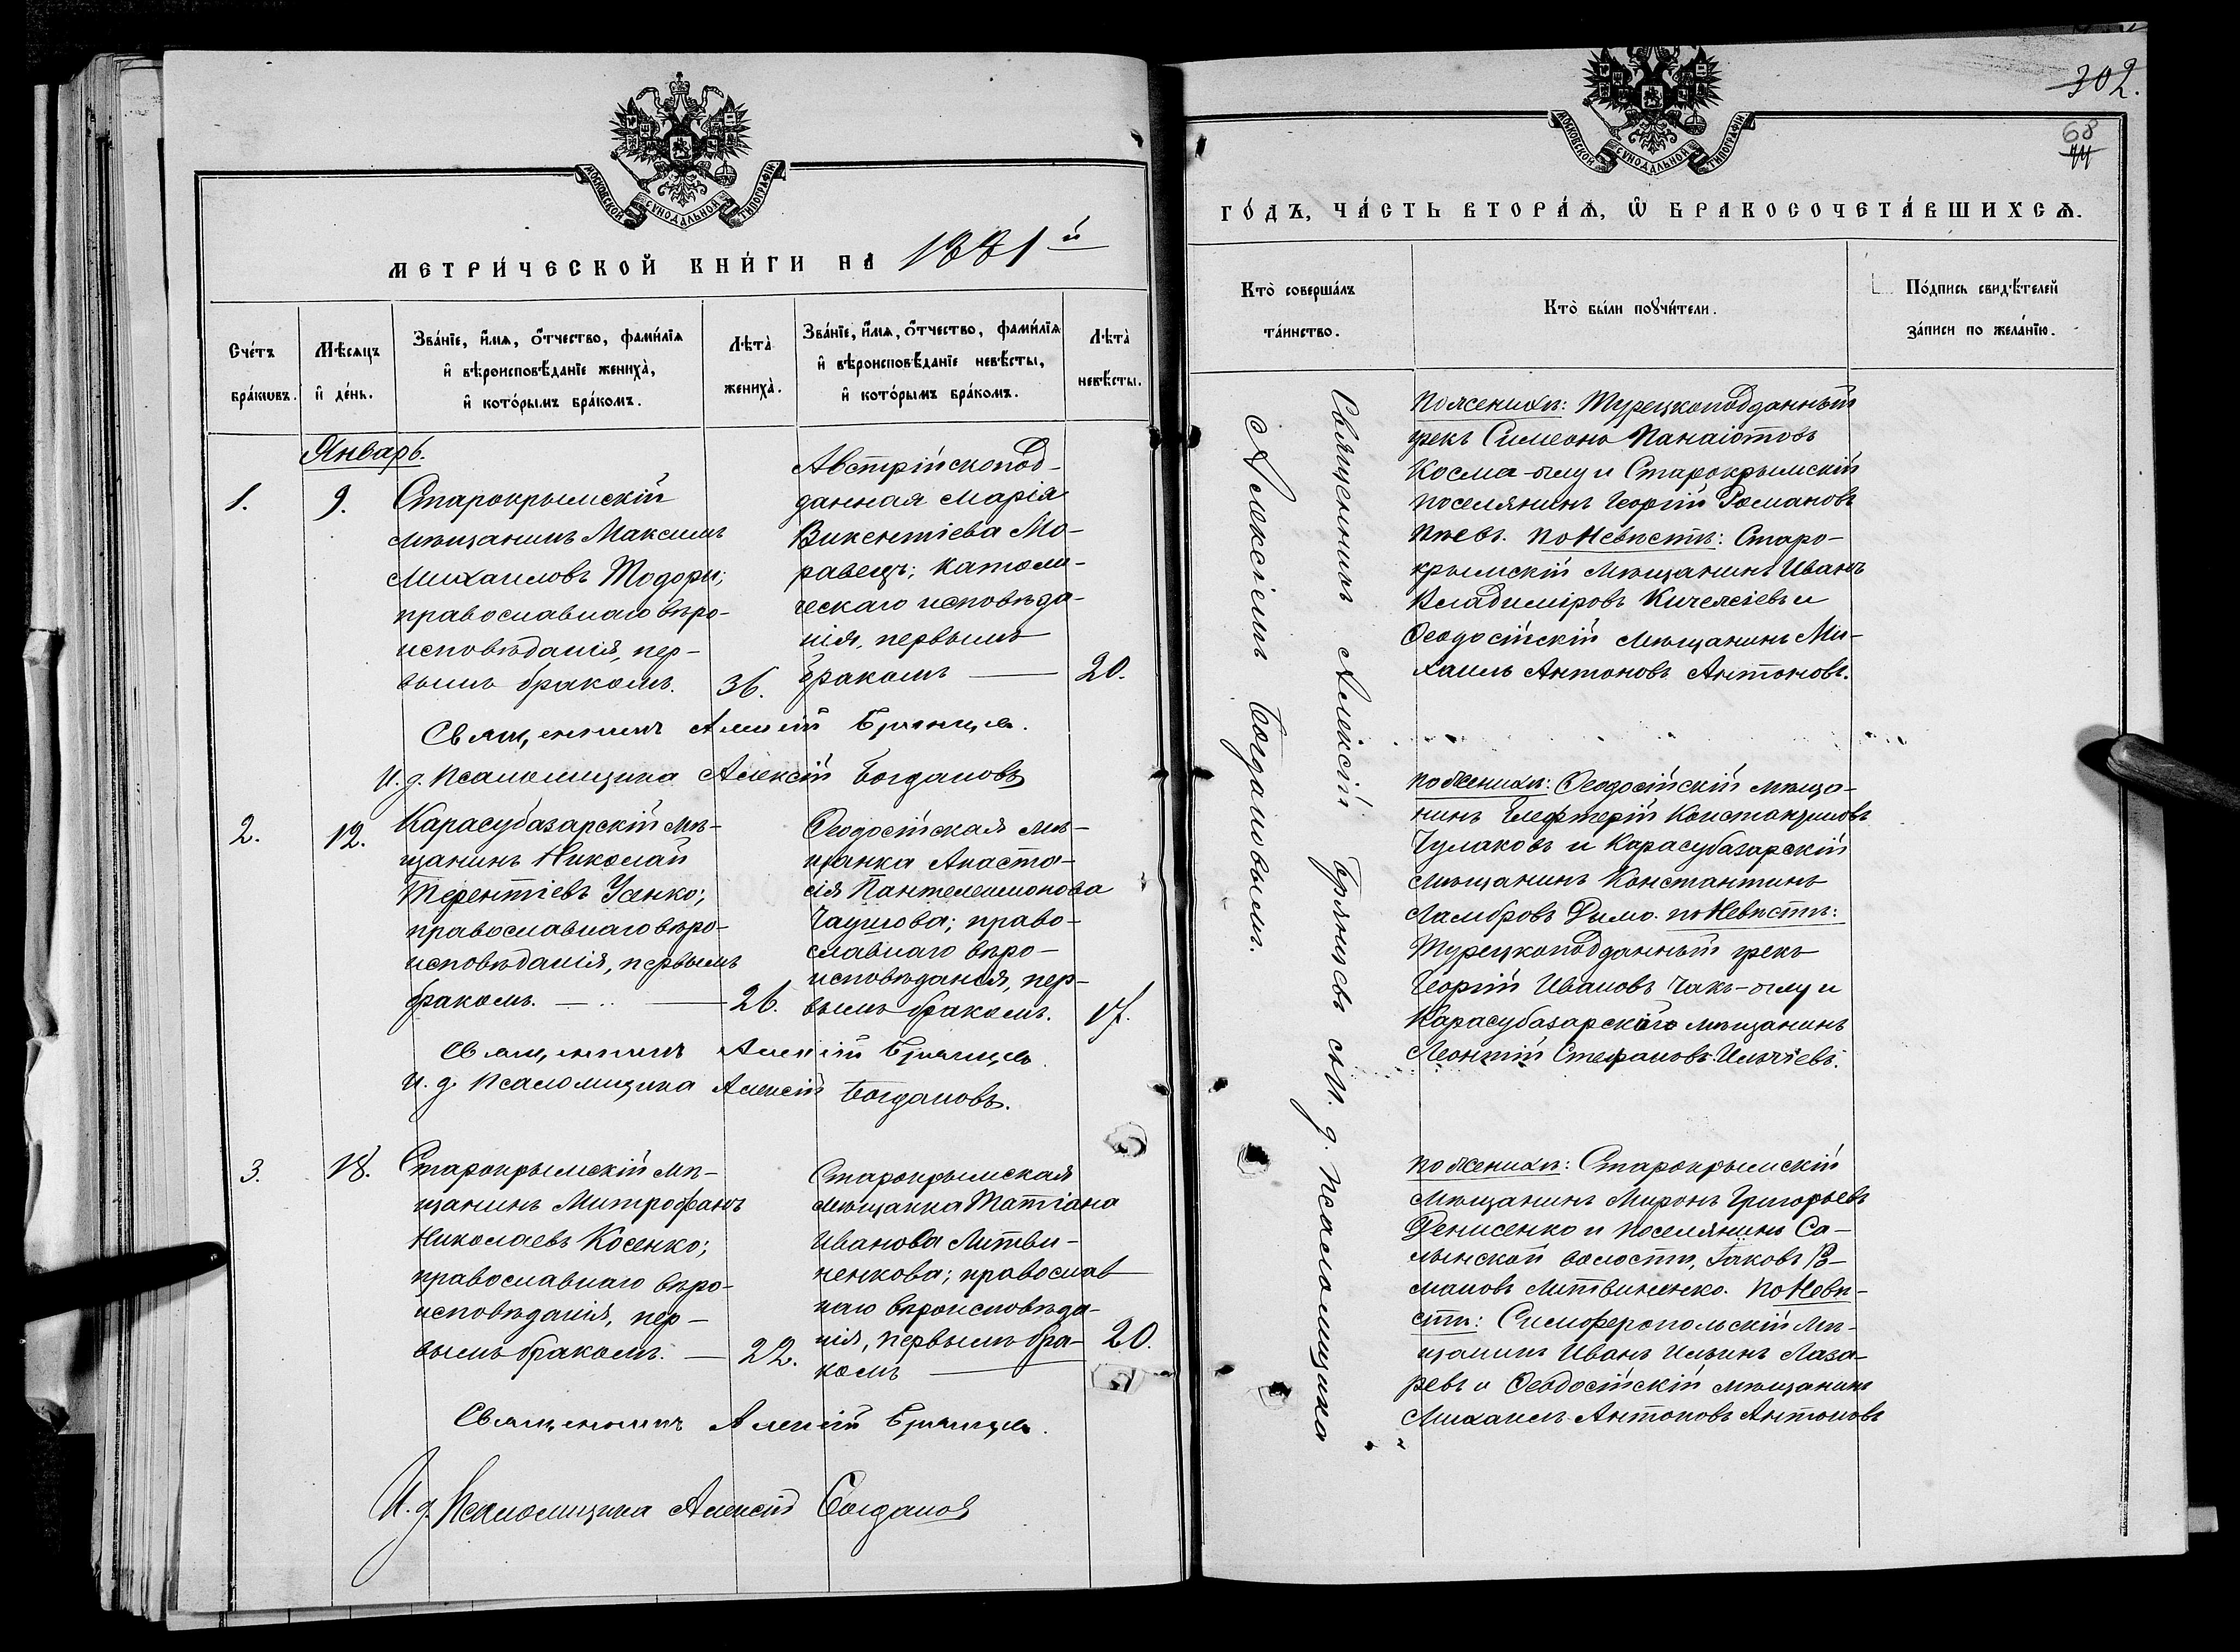 МОСКОВСКОЙ СѴНОДАЛЬНОЙ ТИПОГРАФІИ
МЕТРИ́ЧЕСКОЙ КНИ́ГИ НА 1881й
Сче́тъ бра́кѡвъ.
Мѣ́сяцъ и҆ де́нь.
Зва́нїе, и҆́мя, о҆́тчество, фами́лїя
и҆ вѣроисповѣ́данїе жениха̀,
и҆ кото́рымъ бра́комъ.
Лѣта̀
жениха̀.
Зва́нїе, и҆́мя, о҆́тчество, фами́лїя
и҆ вѣроисповѣ́данїе невѣ́сты,
и҆ кото́рымъ бра́комъ.
Лѣта̀
невѣ́сты.
Январь.
1.
9.
Старокрымскій
мѣщанинъ Максимъ
Михаиловъ Тодори;
православнаго вѣро-
исповѣданія, пер-
вымъ бракомъ.
36.
Австрійскопод-
данная Марія
Викентіева Мо-
равецъ; католи-
ческаго исповѣда-
нія, первымъ
бракомъ
20.
Священникъ Алексій Брянцевъ.
И. д. Псаломщика Алексій Богдановъ
2.
12.
Карасубазарскій мѣ-
щанинъ Николай
Терентіевъ Усенко;
православнаго вѣро-
исповѣданія, первымъ
бракомъ.
26.
Ѳеодосійская мѣ-
щанка Анаста-
сія Пантелеимонова
Чаушова; право-
славнаго вѣро-
исповѣданія, пер-
вымъ бракомъ.
17.
Священникъ Алексій Брянцевъ.
И. д. Псаломщика Алексій Богдановъ.
3.
18.
Старокрымскій мѣ-
щанинъ Митрофанъ
Николаевъ Косенко;
православнаго вѣро-
исповѣданія, пер-
вымъ бракомъ.
22.
Старокрымская
мѣщанка Татіана
Иванова Литви-
ненкова; православ
наго вѣроисповѣда-
нія, первымъ бра-
комъ
20.
Священникъ Алексій Брянцевъ.
И. д. Псаломщика Алексій Богдановъ
302.
68
МОСКОВСКОЙ СѴНОДАЛЬНОЙ ТИПОГРАФІИ
ГО́ДЪ, ЧА́СТЬ ВТОРА́Я, Ѡ҆ БРАКОСОЧЕТА́ВШИХСЯ.
Кто̀ соверша́лъ
та́инство.
Кто̀ бы́ли поꙋчи́тели.
По́дпись свидѣ́телей
за́писи по жела́нїю.
Священникъ Алексій Брянцевъ съ И. д. псаломщика
Алексіемъ Богдановымъ.
По женихѣ: Турецкоподданный
грекъ Симеонъ Панаіотовъ
Косма-оглу и Старокрымскій
поселянинъ Георгій Романовъ
По невѣстѣ: Старо-
крымскій мѣщанинъ Иванъ
Владиміровъ и
Ѳеодосійскій мѣщанинъ Ми-
хаилъ Антоновъ Антоновъ.
По женихѣ: Ѳеодосійскій мѣща-
нинъ Елефтерій Константиновъ
Чулаковъ и Карасубазарскій
мѣщанинъ Константинъ
Ламбровъ Димо. по Невѣстѣ:
Турецкоподданный грекъ
Георгій Ивановъ Чакъ-оглу и
Карасубазарскій мѣщанинъ
Леонтій Стефановъ Ильчіевъ.
По женихѣ: Старокрымскій
мѣщанинъ Миронъ Григорьевъ
Денисенко и поселянинъ Са-
лынской волости, Іаковъ
мановъ Литвиненко. По Невѣ-
стѣ: Симферопольскій мѣ-
щанинъ Иванъ Ильинъ Лаза-
ревъ и Ѳеодосійскій мѣщанинъ
Михаилъ Антоновъ Антоновъ